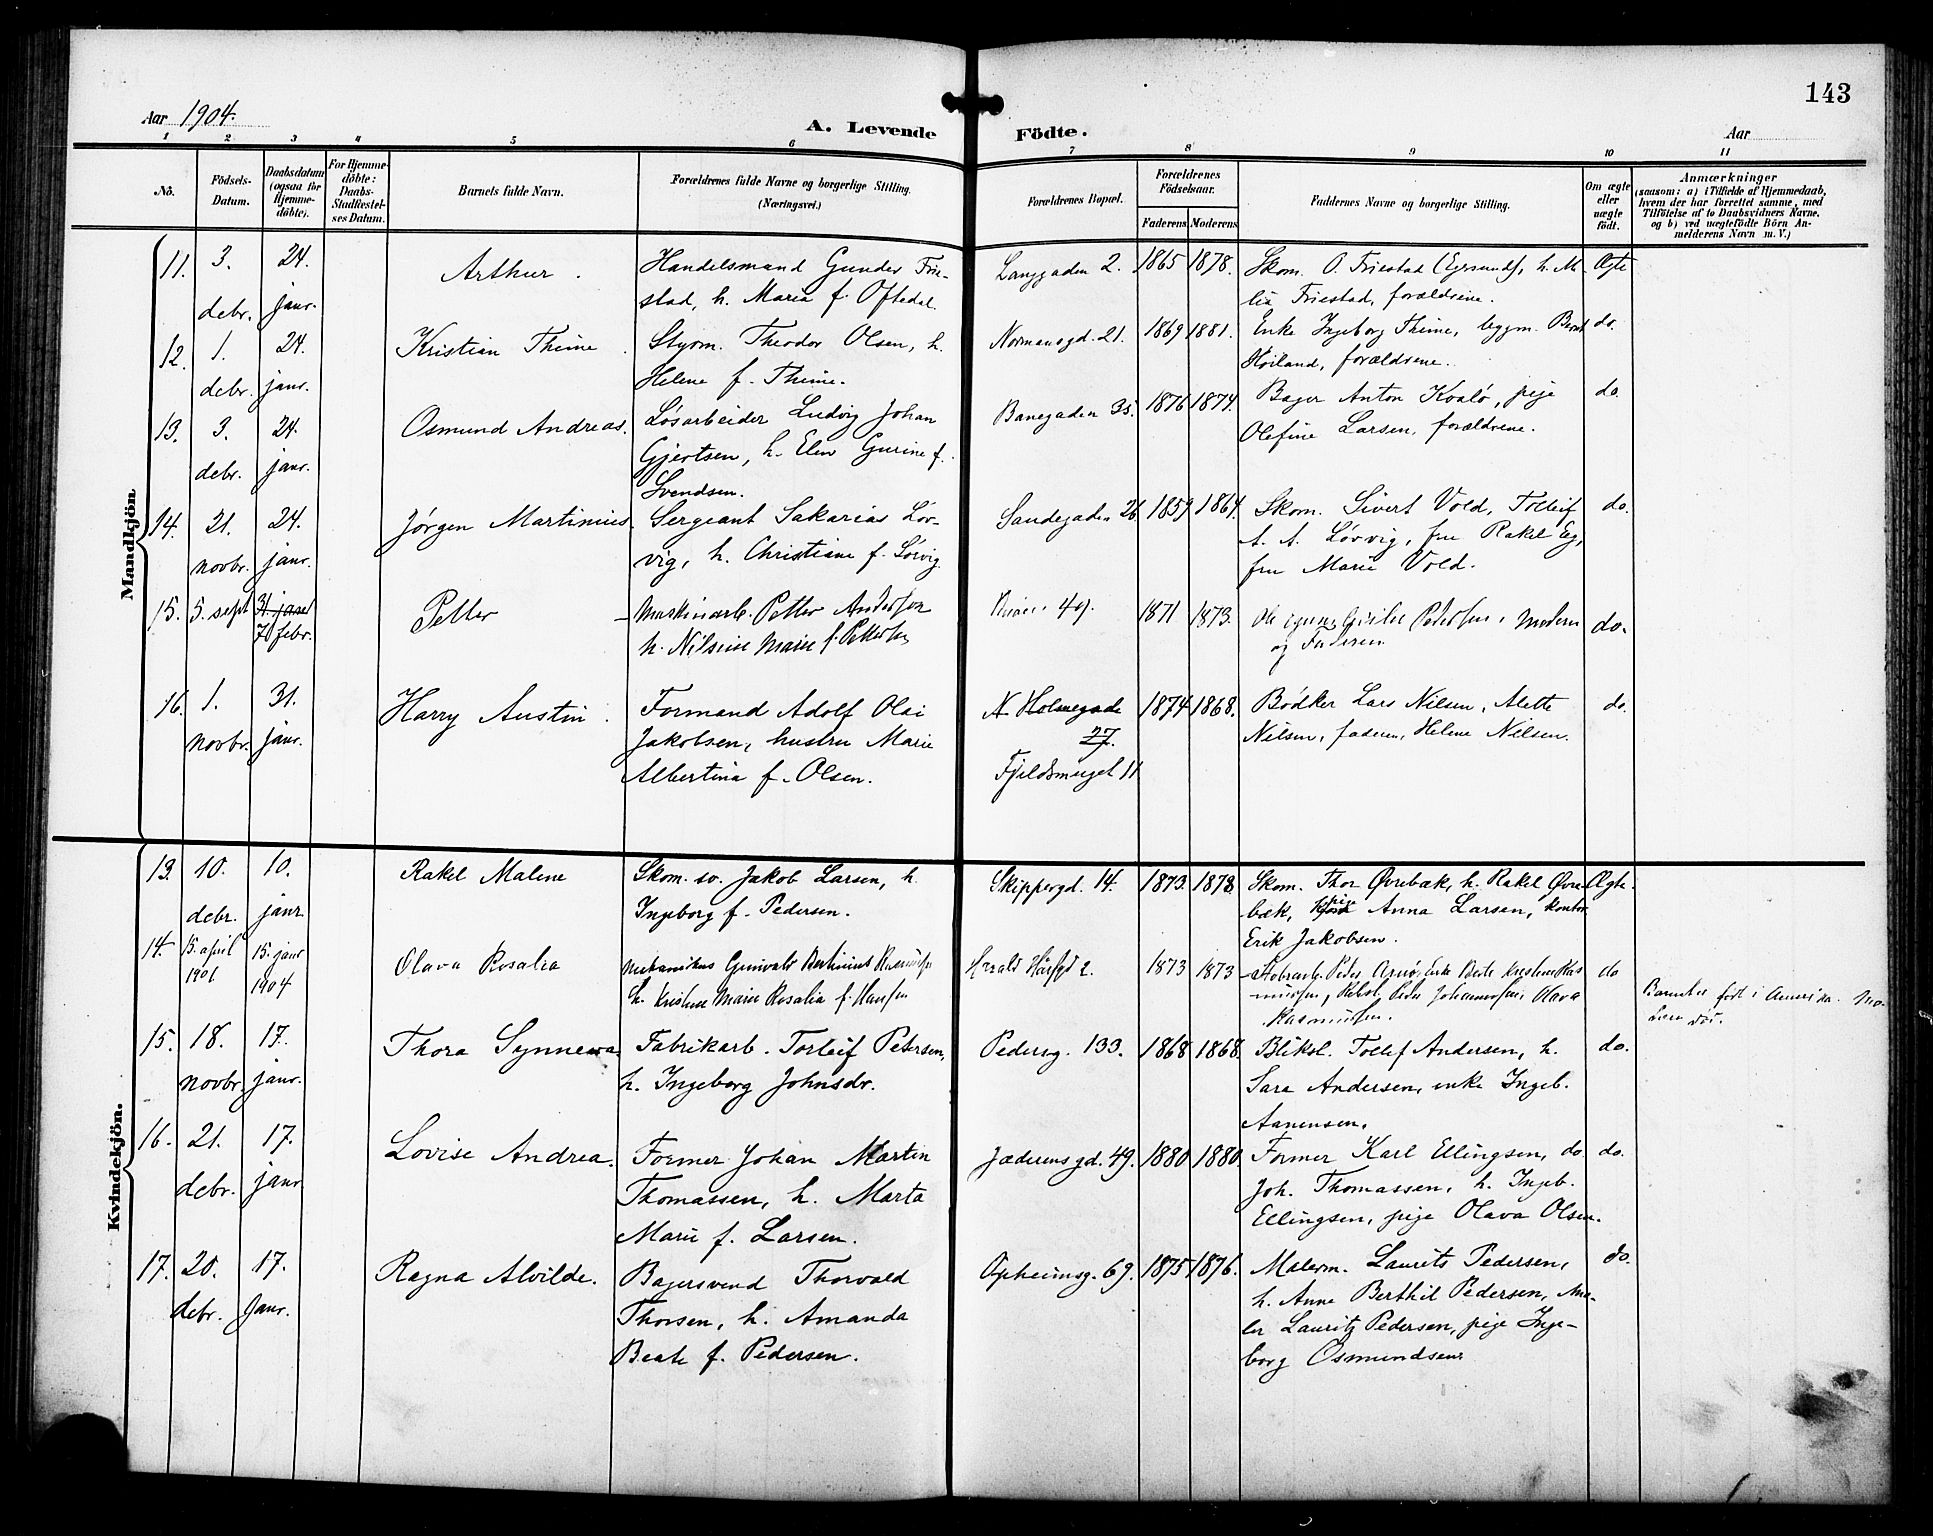 143
Aar 1904.
A. Levende Födte.
Aar
1 2 3 4 5 6 7 8 9 10 11
No.
Födsels-Datum.
Daabsdatum (ogsaa for Hjemme-döbte).
For Hjemme-döbte: Daabs-Stadfæstel-ses Datum.
Barnets fulde Navn.
Forældrenes fulde Navne og borgerlige Stilling.
(Næringsvei.)
Forældrenes Bopæl.
Forældrenes Födselsaar.
Faderens Moderens
Faddernes Navne og borgerlige Stilling.
Om ægte eller uægte födt.
Anmærkninger
(saasom: a) i Tilfælde af Hjemmedaab,
hvem der har forrettet samme, med
Tilföielse af to Daabsvidners Navne,
og b) ved uægtefödte Börn An-
melderens Navn m. V.)
Mandkjön
11. 3. 24. Arthur. Handelsmand Gunder Frie- Langgaden 2. 1865 1878. Skom. O. Friestad (Egersund), h. M Ægte
debr. janr. stad, h. Maria f. Oftedal lia Friestad, forældrene.
12. 1. 24. Kristian Thime. Styrm. Theodor Olsen, h. Normansgd. 21. 1869 1881. Enke Ingeborg Thime, byggm. Bernt do.
debr. janr. Helene f. Thime. Höiland, forældrene.
13. 3. 24. Osmund Andreas. Løsarbeider Ludvig Johan Banegaden 35. 1876 1874. Bager Anton Kvalø, pige do.
debr. janr. Gjertsen, h. Elen Gurine f. Olefine Larsen, forældrene.
Svendsen.
14. 21. 24. Jørgen Martinius. Sergeant Sakarias Lør- Sandegaden 26 1859 1864. Skom. Sivert Vold, Tolleif do.
novbr. janr. vig, h. Christiane f. Lørvig A. A. Lørvig, fru Rakel Eg,
fru Marie Vold.
15. 5. sept 31. janr Petter Maskinarb. Petter Anderson 49. 1871 1873. Pedersen, Moderen do.
7 febr. h. Nilsine Marie f. Pettersen og Faderen
16. 1. 31. Harry Austin. Formand Adolf Olai N. Holmegade 1874 1868. Bødker Lars Nilsen, Alette do.
novbr. janr. Jakobsen, hustru Marie 27. Nilsen, faderen, Helene Nilsen.
Albertina f. Olsen. Fjeldsmuget 11
Kvindekjön.
13. 10. 10. Rakel Malene Skom. sv. Jakob Larsen, h. Skippergd. 14. 1873. 1878. Skom. Thor Øvrebæk, h. Rakel Øvre- Ægte.
debr. janr. Ingeborg f. Pedersen. bæk, pige Anna Larsen, kontor
Erik Jakobsen.
14. 15. april 15. janr Olava Rosalia Mekanikus Gunvald Bertinius Rasmussen Harald Hårfgd 2. 1873 1873 Peder Arnø, Enke Berte Kristine Ras do
1901 1904 h. Kristine Marie Rosalia f. Hansen mussen, Peder Johannessen, Olava Barnet er født i Amerika. Mo-
Rasmussen. deren død.
15. 18. 17. Thora Synneva Fabrikarb. Torleif Petersen, Pedersg. 133. 1868 1868. Bliksl. Tollef Andersen, h. do.
novbr. janr. h. Ingeborg Johnsdr. Sara Andersen, enke Ingeb.
Aanensen.
16. 21. 17. Lovise Andrea. Former Johan Martin Jæderensgd. 49. 1880 1880. Former Karl Ellingsen, do. do.
debr. janr. Thomassen, h. Marta Joh. Thomassen, h. Ingeb.
Marie f. Larsen. Ellingsen, pige Olava Olsen.
17. 20. 17. Ragna Alvilde. Bagersvend Thorvald Opheimsg. 69. 1875 1876. Malerm. Laurits Pedersen, do.
debr. janr. Thorsen, h. Amanda h. Anne Berthil Pedersen, Ma-
Beate f. Pedersen. ler Lauritz Pedersen, pige Inge-
borg Osmundsen.